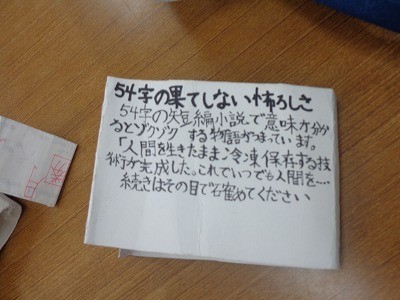 54字の果てしない怖ろしさ
54字の短編小説で意味が分か
るとゾクゾクする物語がつまっています。
「人間を生きたまま冷凍保存する技
術が完成した。これでいつでも人間を…
続きはその目で確かめてください